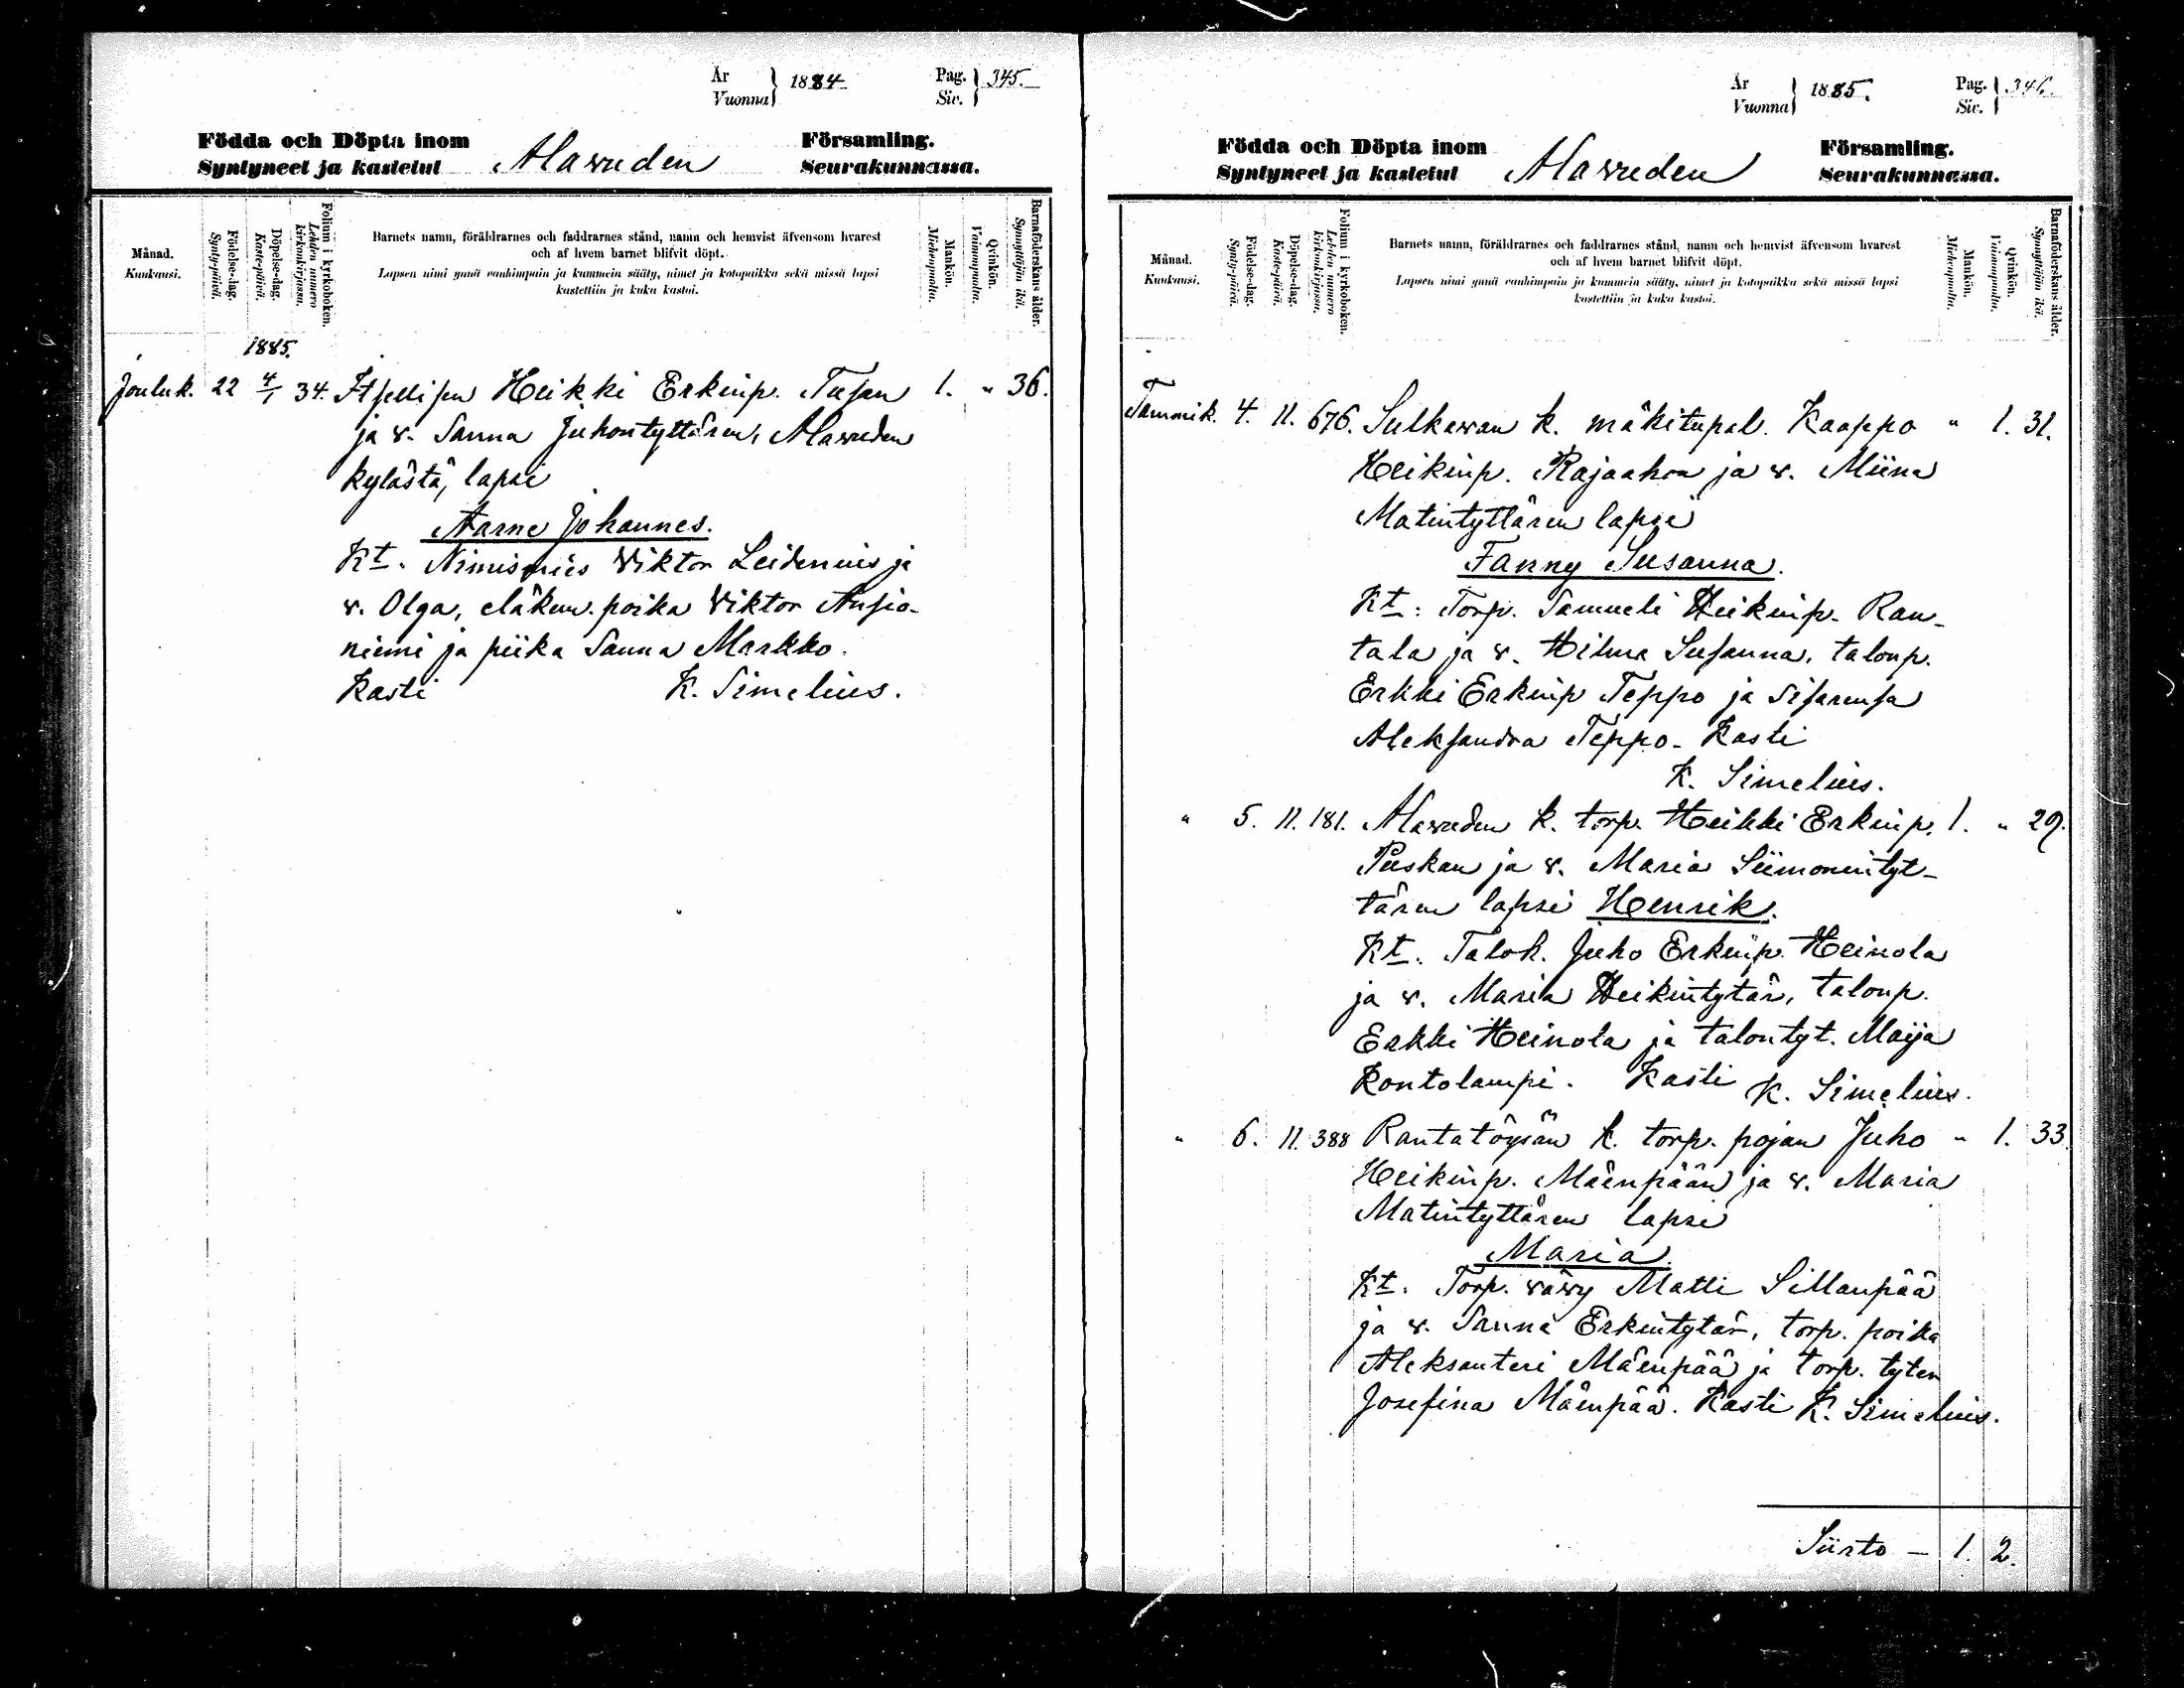 År
Vuonna } 1884 Pag.
Siv. } 345.
Födda och Döpta inom Församling.
Syntyneet ja kastetut Alawuden Seurakunnassa.
Månad.
Kuukausi.
Födelse-dag.
Synty-päivä.
Döpelse-dag.
Kaste-päivä.
Folium i kyrkoboken.
Lehden numero
kirkonkirjassa.
Barnets namn, föräldrarnes och faddrarnes stånd, namn och hemvist äfvensom hvarest
och af hvem barnet blifvit döpt.
Lapsen nimi ynnä vanhimpain ja kummein sääty, nimet ja kotopaikka sekä missä lapsi
kastettiin ja kuka kastoi.
Mankön.
Miehenpuolta.
Qvinkön.
Vaimonpuolta.
Barnaföderskans ålder.
Synnyttäjän ikä.
1885.
Jouluk. 22 4/1 34. Itsellisen Heikki Erkinp. Tusan 1. " 36.
ja v. Sanna Juhontyttären, Alawuden
kylästä, lapsi
Aarne Johannes.
Kt. Nimismies Viktor Leidenius ja
v. Olga, eläkem. poika Viktor Ansio-
niemi ja piika Sanna Markko.
Kasti K. Simelius.
År
Vuonna } 1885. Pag.
Siv. } 346.
Födda och Döpta inom Församling.
Syntyneet ja kastetut Alawuden Seurakunnassa.
Månad.
Kuukausi.
Födelse-dag.
Synty-päivä.
Döpelse-dag.
Kaste-päivä.
Folium i kyrkoboken.
Lehden numero
kirkonkirjassa.
Barnets namn, föräldrarnes och faddrarnes stånd, namn och hemvist äfvensom hvarest
och af hvem barnet blifvit döpt.
Lapsen nimi ynnä vanhimpain ja kummein sääty, nimet ja kotopaikka sekä missä lapsi
kastettiin ja kuka kastoi.
Mankön.
Miehenpuolta.
Qvinkön.
Vaimonpuolta.
Barnaföderskans ålder.
Synnyttäjän ikä.
Tammik. 4. 11. 676. Sulkawan k. mäkitupal. Kaappo " 1. 31.
Heikinp. Rajaahon ja v. Miina
Matintyttären lapsi
Fanny Susanna.
Kt: Torp. Samueli Heikinp. Ran-
tala ja v. Hilma Susanna, talonp.
Erkki Erkinp Teppo ja sisarensa
Aleksandra Teppo. Kasti
K. Simelius.
" 5. 11. 181. Alawuden k. torp. Heikki Erkinp. 1. " 29.
Puskan ja v. Maria Siimonintyt-
tären lapsi Henrik.
Kt. Talok. Juho Erkinp. Heinola
ja v. Maria Heikintytär, talonp.
Erkki Heinola ja talontyt. Maija
Kontolampi. Kasti K. Simelius.
" 6. 11. 388 Rantatöysän k. torp. pojan Juho " 1. 33
Heikinp. Mäenpään ja v. Maria
Matintyttären lapsi
Maria.
Kt. Torp. wäwy Matti Sillanpää
ja v. Sanna Erkintytär, torp. poika
Aleksanteri Mäenpää ja torp. tytär
Josefina Mäenpää. Kasti K. Simelius.
Siirto - 1. 2.